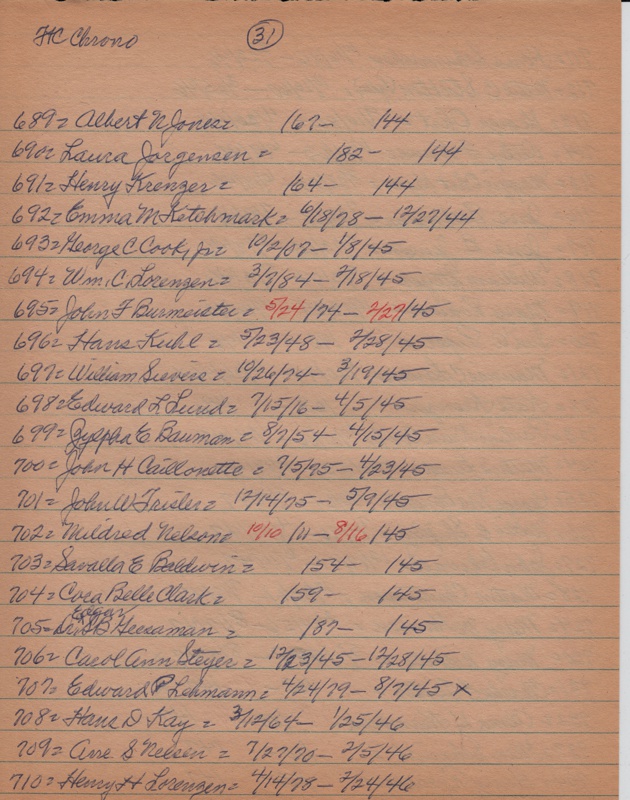 HC Chrono 31
689= Albert N Jones= /67- /44
690= Laura Jorgensen = /82- /44
691= Henry Krenzer = /64- /44
692= Emma M Ketchmark = 6/18/78- 12/27/44
693= George C Cook, jr= 10/2/07- 1/8/45
694= Wm. C Lorenzen= 3/7/84- 2/18/45
695= John F Burmeister = 5/24/74- 2/27/45
696= Hans Kuhl = 5/23/48- 2/28/45
697= William Sievers = 10/26/74- 3/19/45
698= Edward L Lund= 7/15/16- 4/5/45
699= Zylpha E Bauman= 8/7/54- 4/15/45
700= John H Caillonette = 7/5/75- 4/23/45
701= John W Frisler= 12/14/75- 5/9/45
702= Mildred Nelson= 10/10/11- 8/16/45
703= Savalla E Baldwin= 154- 145
704= Cora Belle Clark= 159- 145
Edgar
705= Dr. S B Geesaman = /87- /45
706= Carol Ann Steyer = 12/23/45-12/28/45
707= Edward P Lehmann= 4/24/79- 8/7/45 x
708= Hans D Kay = 3/12/64- 1/25/46
709= Arre S Nelsen = 7/27/70- 2/5/46
710= Henry H Lorenzen= 4/14/78- 2/24/46